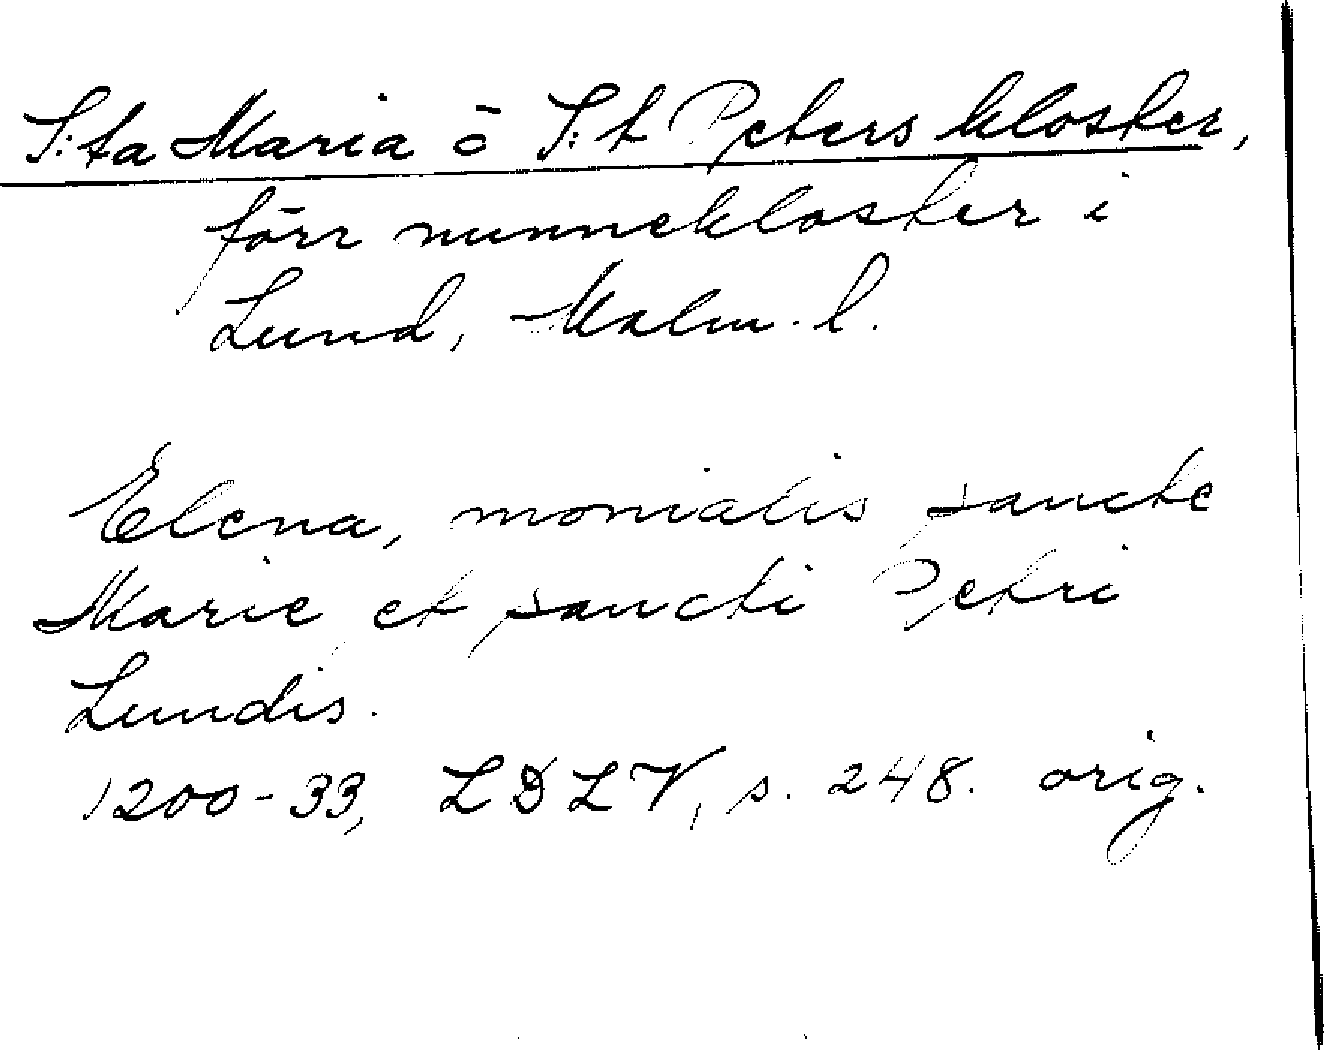 S:ta Maria o S:t Peters kloster,
förr nunnekloster i
Lund, Malm. l.
Elena, monialis sancte
Marie et sancti Petri
Lundis.
1200-33, LDLV, s. 248. orig.